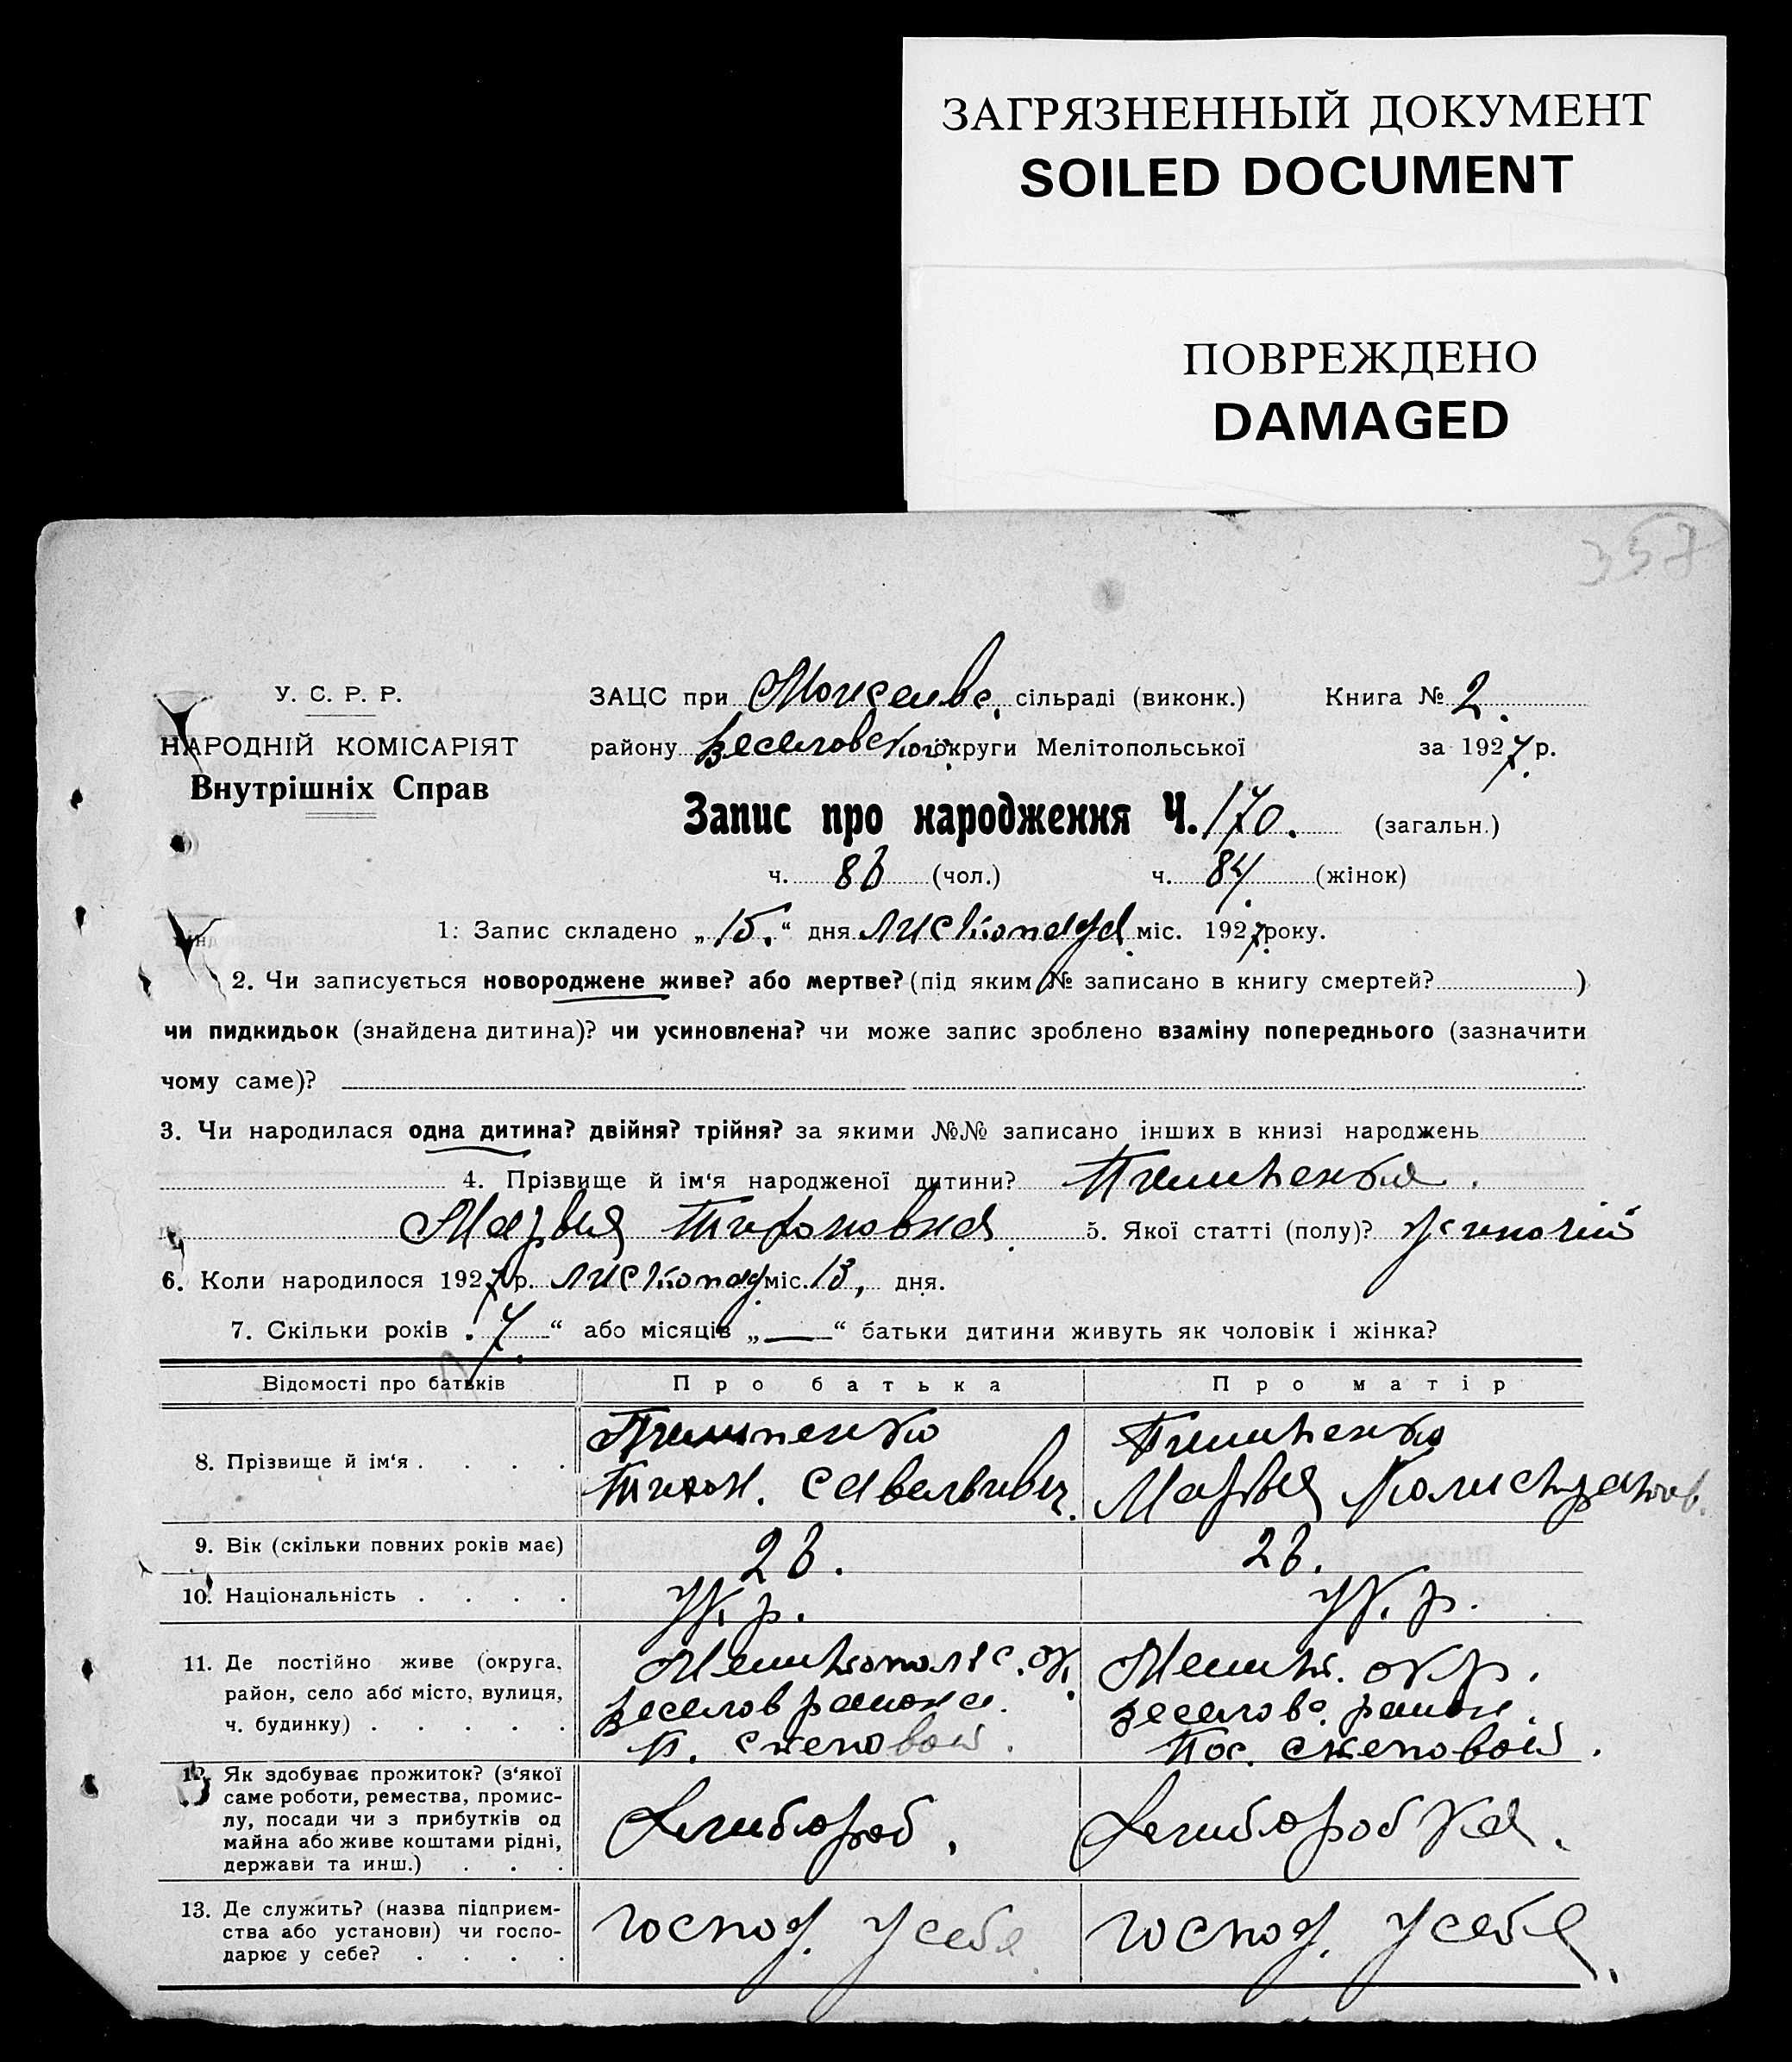 ЗАГРЯЗНЕННЫЙ ДОКУМЕНТ
SOILED DOCUMENT
ПОВРЕЖДЕНО
DAMAGED
358
У. С. Р. Р.
НАРОДНІЙ КОМІСАРІЯТ
Внутрішніх Справ
ЗАЦС при сільраді (виконк.) Книга № 2.
району Веселовского округи Мелітопольської за 1927 р.
Запис про народження Ч. 170. (загальн.)
ч. 86 (чол.) ч. 84 (жінок)
1: Запис складено „15." дня листопада міс. 1927 року.
2. Чи записується новороджене живе? або мертве? (під яким № записано в книгу смертей? )
чи пидкидьок (знайдена дитина)? чи усиновлена? чи може запис зроблено взаміну попереднього (зазначити
чому саме)?
3. Чи народилася одна дитина? двійня? трійня? за якими №№ записано інших в книзі народжень
4. Прізвище й ім'я народженої дитини?
Марья Тихоновна 5. Якої статті (полу)? жиночій
6. Коли народилося 1927 р. листопад міс. 13, дня.
7. Скільки років „7." або місяців „—" батьки дитини живуть як чоловік і жінка?
Відомості про батьків Про батька Про матір
8. Прізвище й ім'я . . . .
Тихон. Савельивич. Марья
9. Вік (скільки повних років має) 26. 26.
10. Національність . . . . Укр. Укр.
11. Де постійно живе (округа, район, село або місто, вулиця, ч. будинку) . . . . .
Мелитопольс. ок. Мелит. окр.
Веселов района. Веселовс. район.
п. степовой. Пос. степовой.
12. Як здобуває прожиток? (з'якої
саме роботи, ремества, промис-
лу, посади чи з прибутків од
майна або живе коштами рідні,
держави та инш.) . . .
Хлиборob. Хлиборобка.
13. Де служить? (назва підприєм-
ства або установи) чи госпо-
дарює у себе? . . . .
господ. у себя господ. у себе.